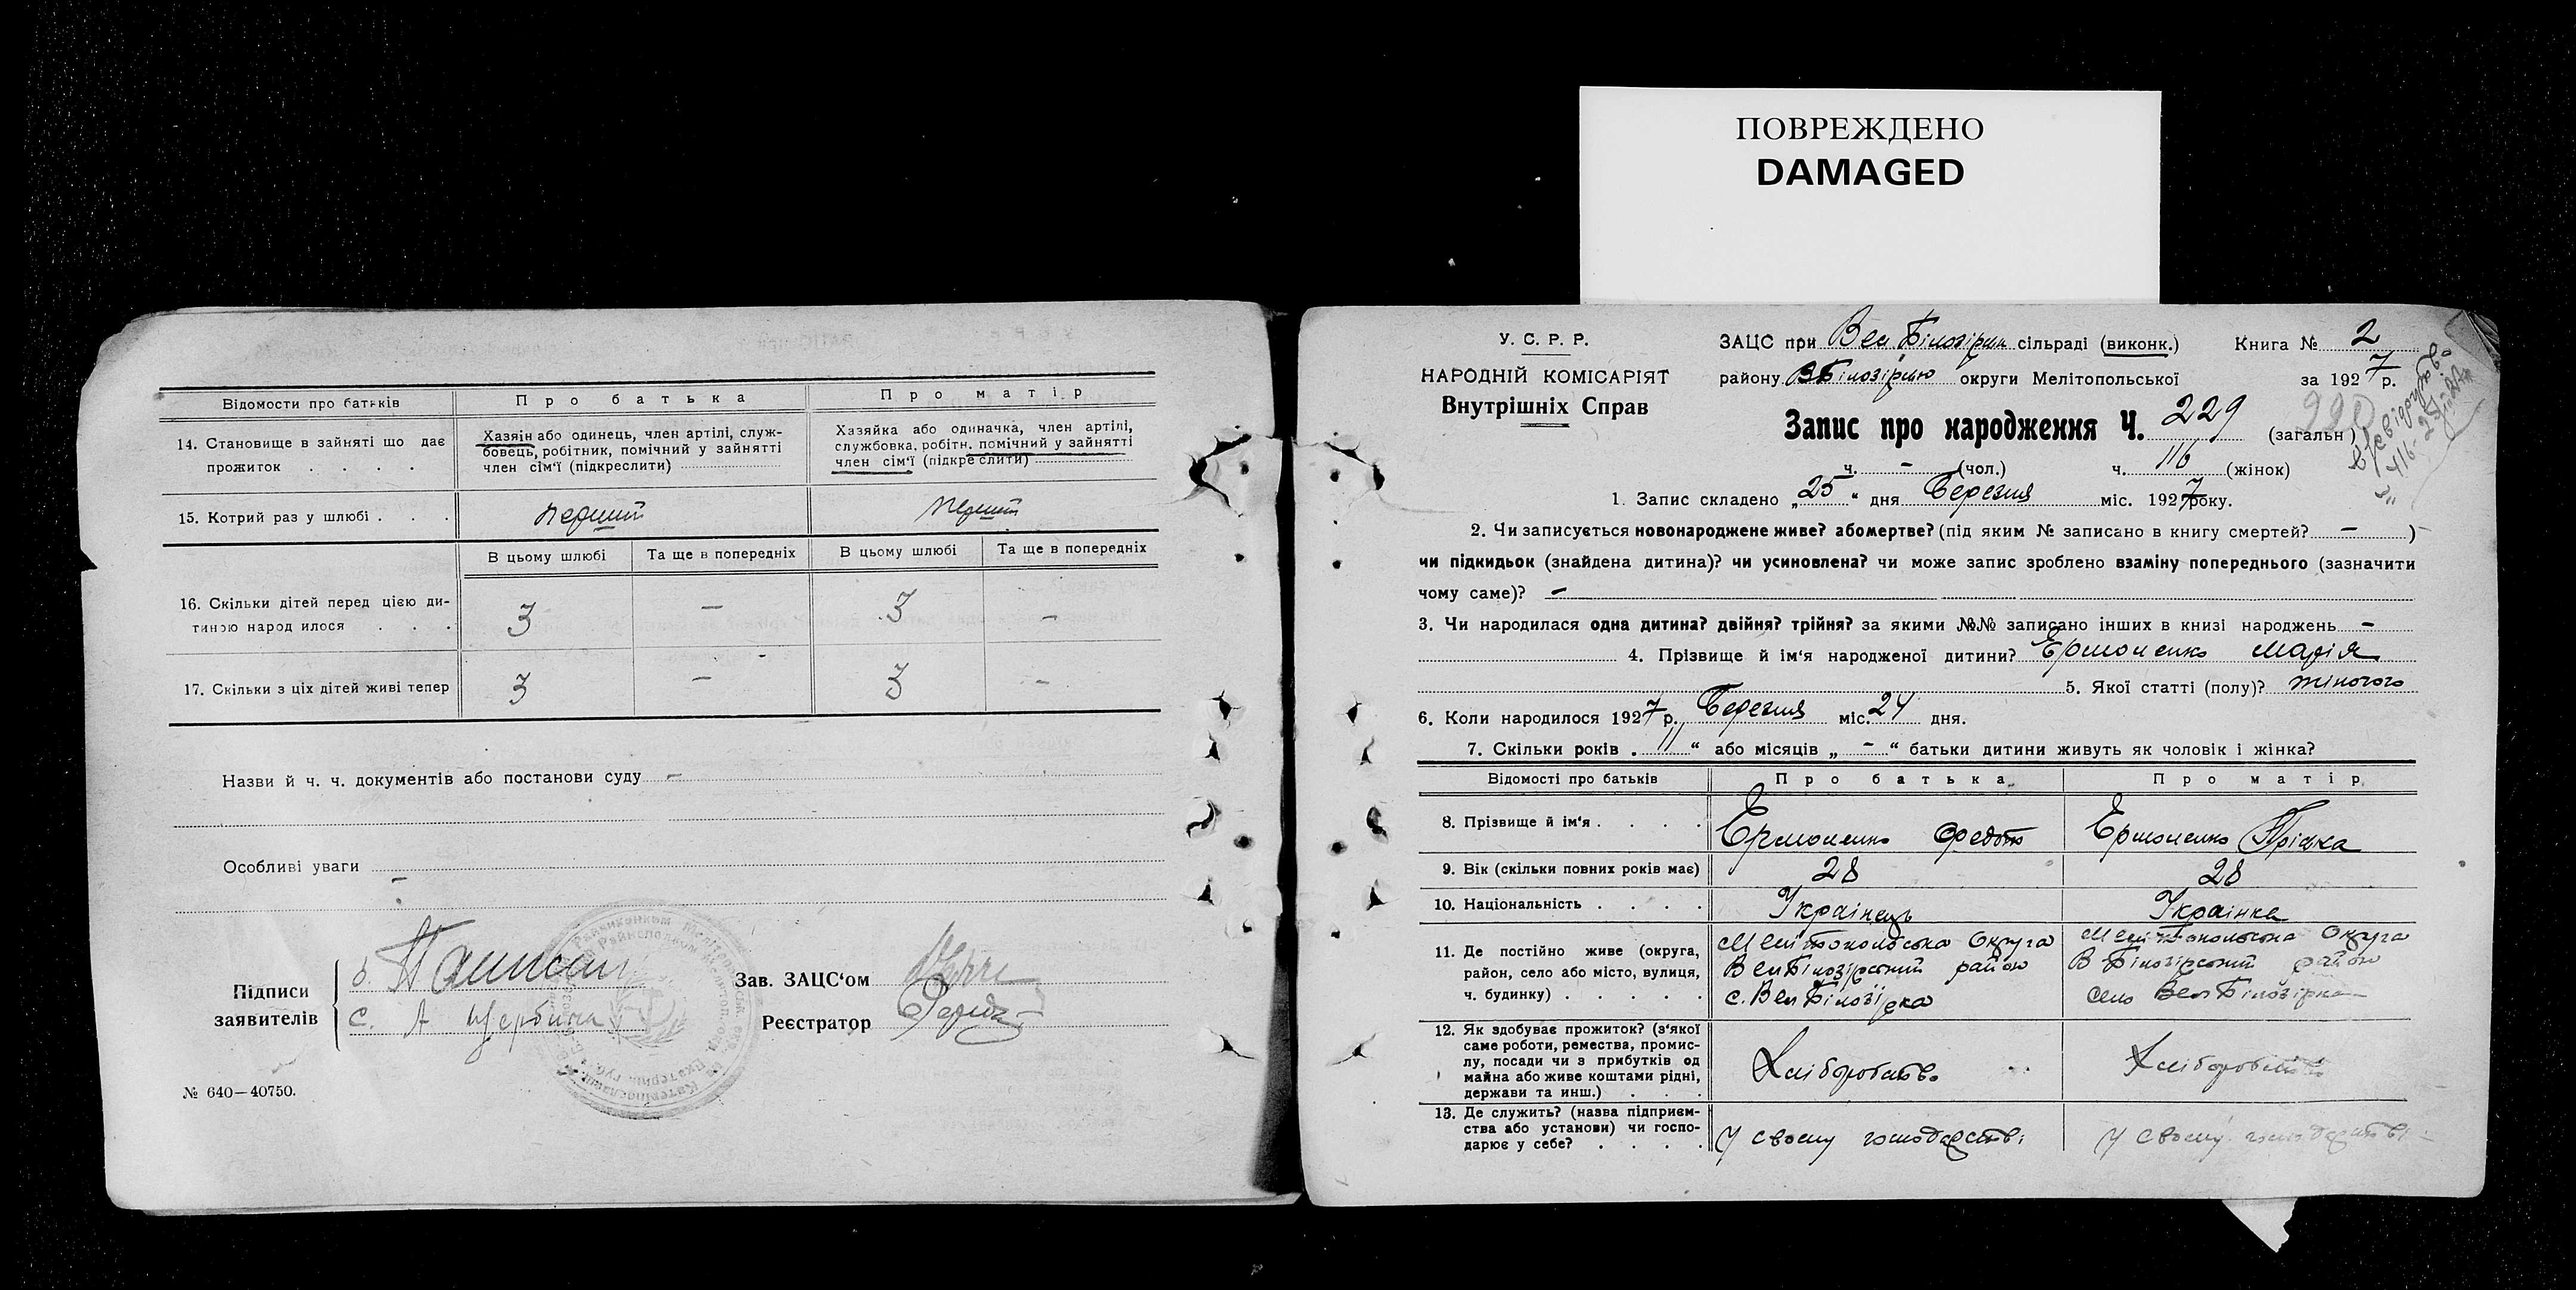 ПОВРЕЖДЕНО
DAMAGED
Відомости про батьків
Про батька
Про матір
14. Становище в зайняті що дає прожиток . . . .
Хазяін або одинець, член артілі, служ-
бовець, робітник, помічний у зайнятті
член сім'ї (підкреслити)
Хазяйка або одиначка, член артілі,
службовка, робітн. помічний у зайнятті
член сім'ї (підкреслити)
15. Котрий раз у шлюбі . . .
перший
перший
В цьому шлюбі
Та ще в попередніх
В цьому шлюбі
Та ще в попередніх
16. Скільки дітей перед цією ди-
тиною народилося . . .
3 — 3 —
17. Скільки з ціх дітей живі тепер
3 — 3 —
Назви й ч. ч. документів або постанови суду —
Особливі уваги —
Підписи
заявителів
С. А Щербина
Зав. ЗАЦС'ом
Реєстратор
№ 640—40750.
У. С. Р. Р.
НАРОДНІЙ КОМІСАРІЯТ
Внутрішніх Справ
ЗАЦС при Вел Білозірки сільраді (виконк.) Книга № 2
району В Білозірцю округи Мелітопольської за 1927 р.
Запис про народження Ч. 229 (загальн)
ч. - (чол.) ч. 116 (жінок)
1. Запис складено „25“ дня Березня міс. 1927 року.
2. Чи записується новонароджене живе? або мертве? (під яким № записано в книгу смертей? — )
чи підкидьок (знайдена дитина)? чи усиновлена? чи може запис зроблено взаміну попереднього (зазначити
чому саме)? —
3. Чи народилася одна дитина? двійня? трійня? за якими №№ записано інших в книзі народжень —
4. Прізвище й ім'я народженої дитини? Ермоленко Марія
5. Якої статті (полу)? жіночого
6. Коли народилося 1927 р. Березня міс. 24 дня.
7. Скільки років „11“ або місяців „-“ батьки дитини живуть як чоловік і жінка?
Відомості про батьків
Про батька
Про матір
8. Прізвище й ім'я . . . .
Ермоленко Федот
Ермоленко Пріська
9. Вік (скільки повних років має)
28
28
10. Національність . . . .
Українець
Українка
11. Де постійно живе (округа,
район, село або місто, вулиця,
ч. будинку) . . . . .
Мелітопольська Округа
Вел Білозірський район
с. Вел Білозірка
Мелітопольська Округа
В Білозірський район
село Вел Білозірка
12. Як здобуває прожиток? (з'якої
саме роботи, ремества, промис-
лу, посади чи з прибутків од
майна або живе коштами рідні,
держави та инш.) . . .
Хліборобство
Хліборобство
13. Де служить? (назва підприєм-
ства або установи) чи госпо-
дарює у себе? . . . .
У своєму господарстві
У своєму господарстві